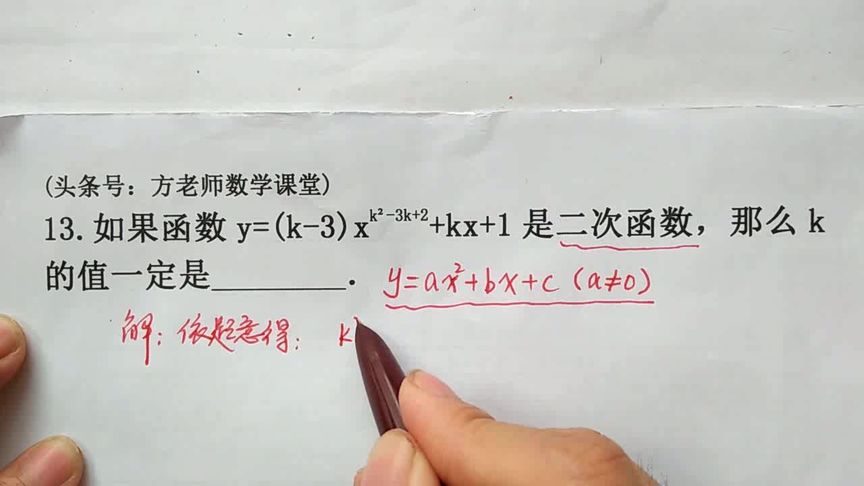 (头条号：方老师数学课堂)
13.如果函数 y=(k-3)x^{k²-3k+2}+kx+1 是二次函数，那么 k
的值一定是________．
y=ax²+bx+c（a≠0）
解：依题意得： k